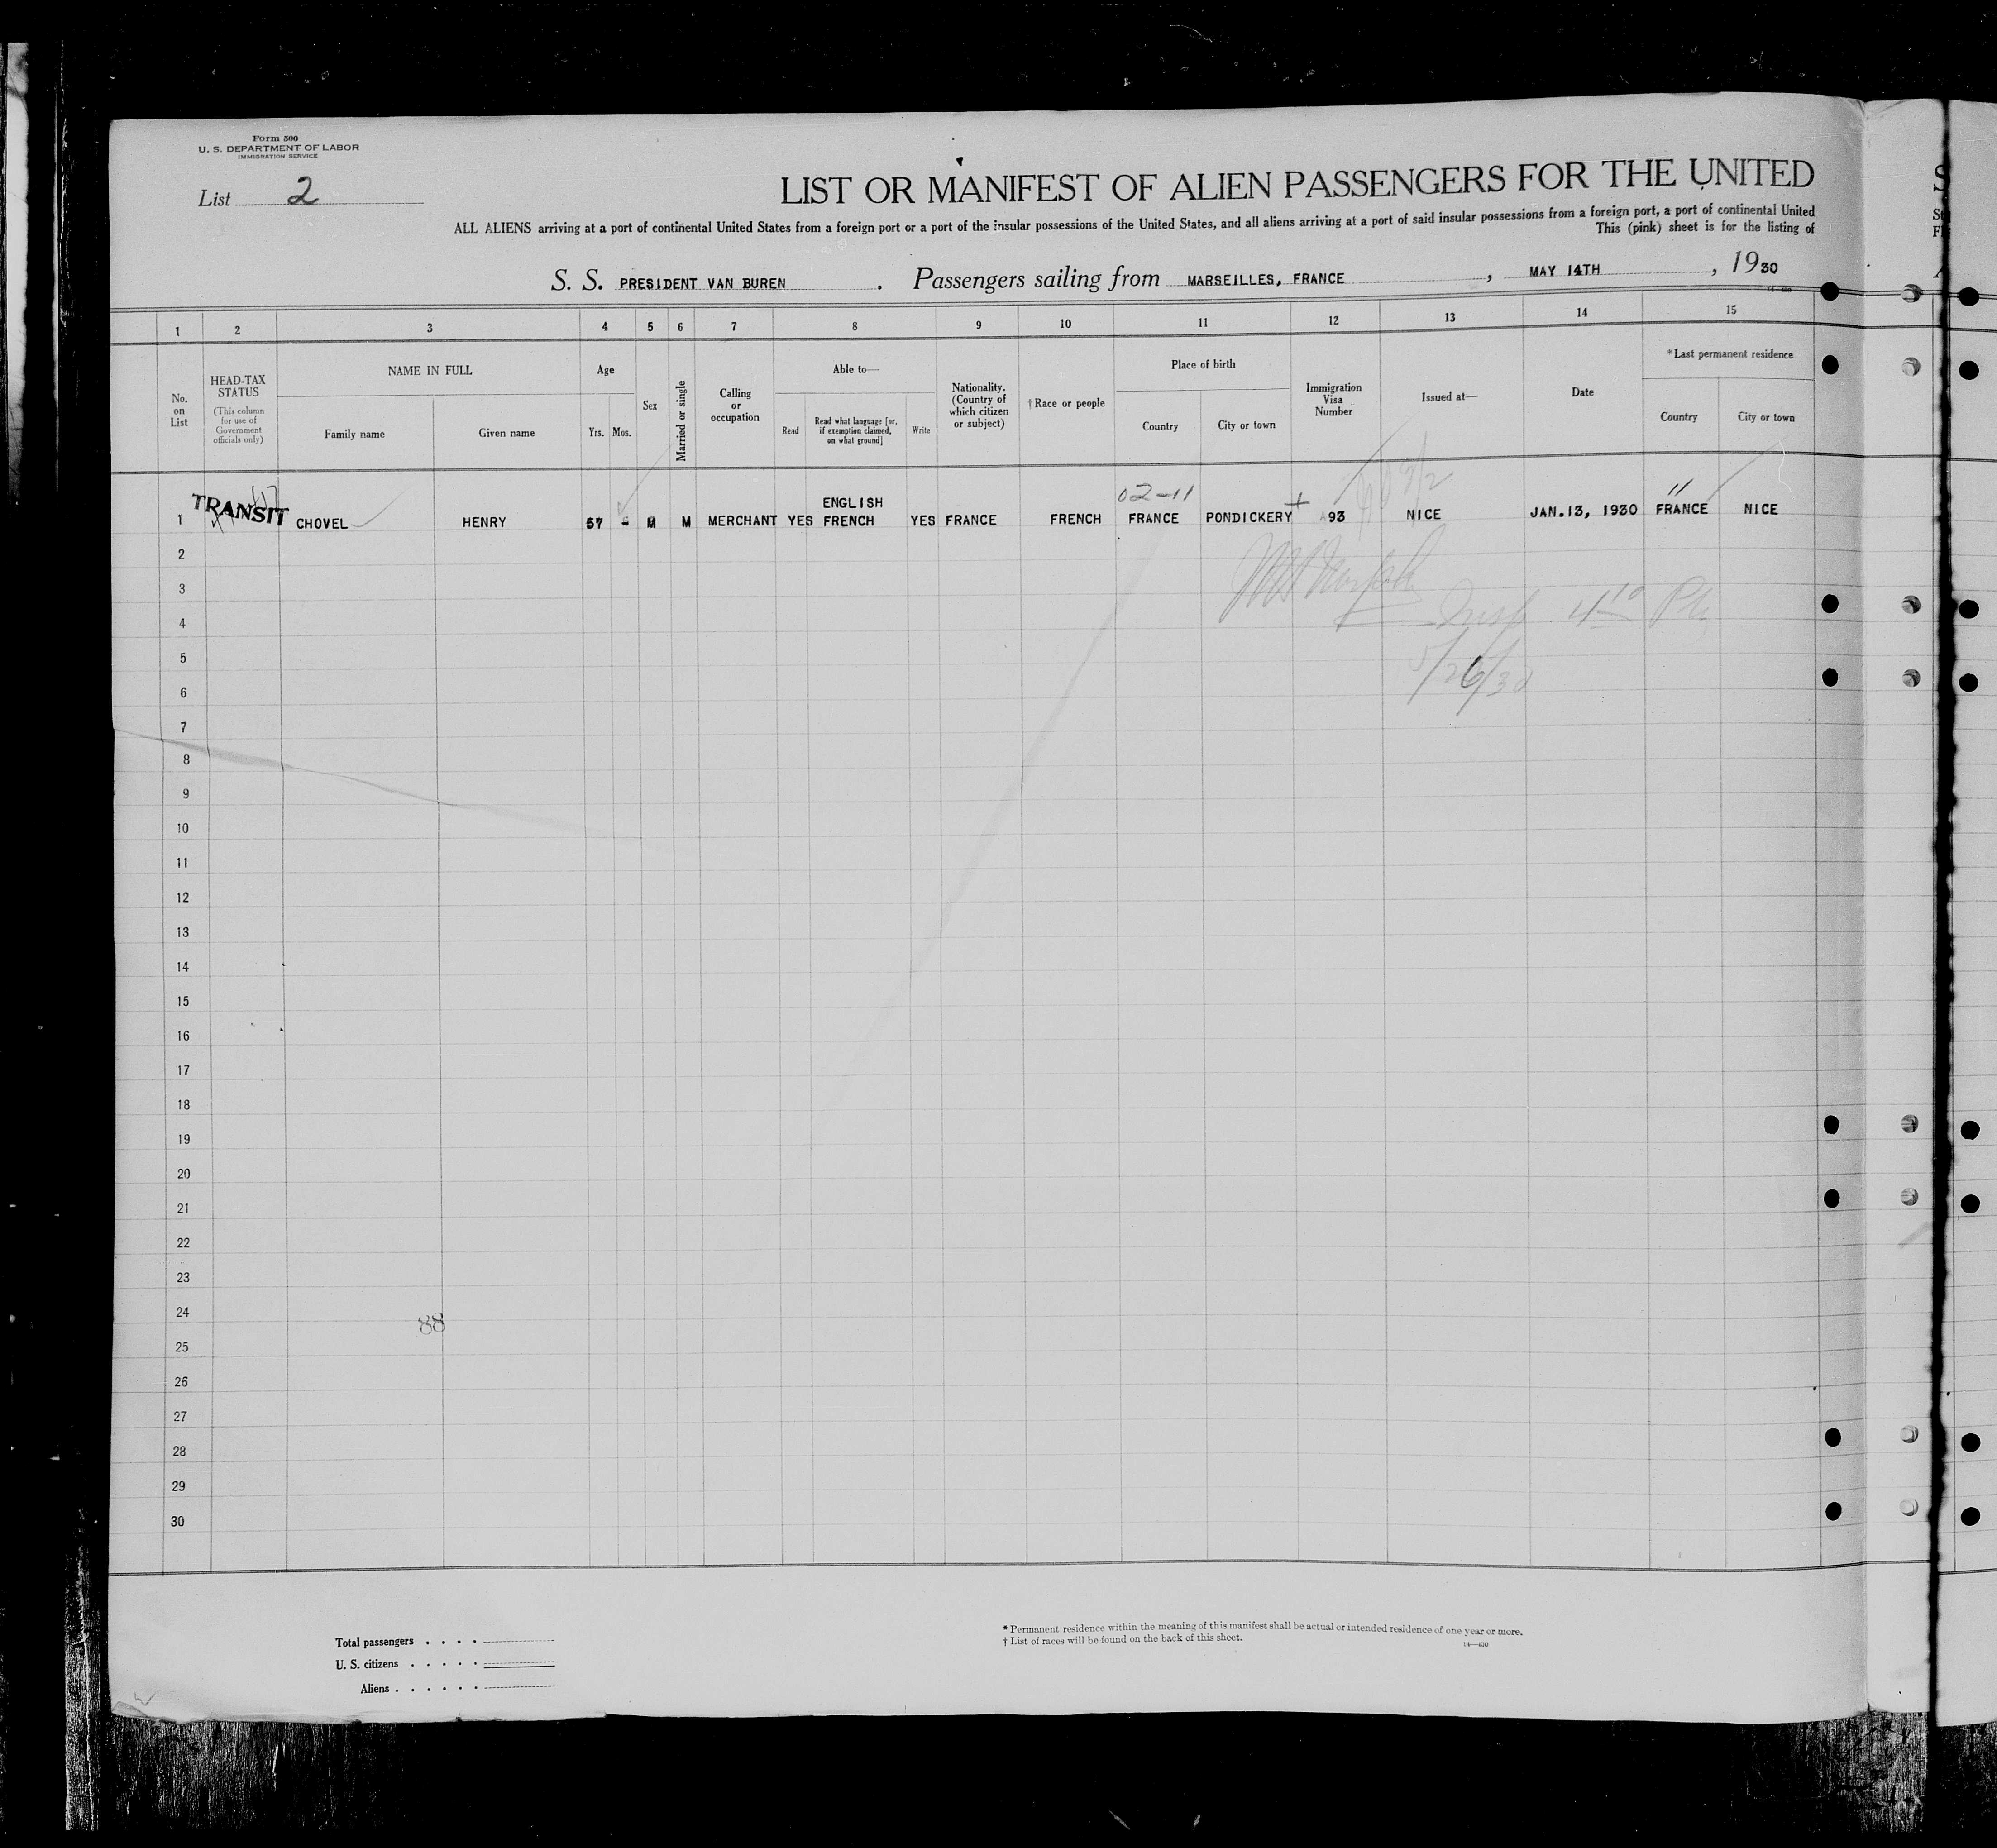 Form 500
U. S. DEPARTMENT OF LABOR
IMMIGRATION SERVICE
List 2
LIST OR MANIFEST OF ALIEN PASSENGERS FOR THE UNITED
ALL ALIENS arriving at a port of continental United States from a foreign port or a port of the insular possessions of the United States, and all aliens arriving at a port of said insular possessions from a foreign port, a port of continental United
This (pink) sheet is for the listing of
S. S. PRESIDENT VAN BUREN . Passengers sailing from MARSEILLES, FRANCE , MAY 14TH , 1930
1 2 3 4 5 6 7 8 9 10 11 12 13 14 15
No. on List
HEAD-TAX STATUS
(This column for use of Government officials only)
NAME IN FULL
Family name
Given name
Age
Yrs. Mos.
Sex
Married or single
Calling or occupation
Able to—
Read
Read what language [or, if exemption claimed, on what ground]
Write
Nationality. (Country of which citizen or subject)
† Race or people
Place of birth
Country
City or town
Immigration Visa Number
Issued at—
Date
* Last permanent residence
Country
City or town
02-11
1 TRANSIT CHOVEL HENRY 57 M M MERCHANT YES ENGLISH FRENCH YES FRANCE FRENCH FRANCE PONDICKERY 93 NICE JAN.13, 1930 FRANCE NICE
2
3
Insp 4 10
4
5
5/26/30
6
7
8
9
10
11
12
13
14
15
16
17
18
19
20
21
22
23
24
88
25
26
27
28
29
30
Total passengers . . . .
U. S. citizens . . . . .
Aliens . . . . . .
* Permanent residence within the meaning of this manifest shall be actual or intended residence of one year or more.
† List of races will be found on the back of this sheet.
14—400